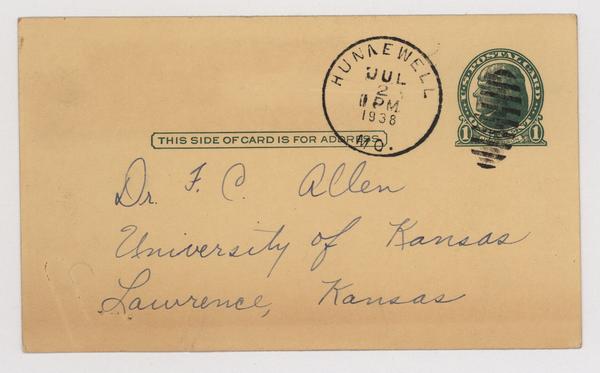 HUNNEWELL
JUL
2
1 PM
1938
MO.
U.S. POSTAL CARD
1 1
THIS SIDE OF CARD IS FOR ADDRESS
Dr. F. C. Allen
University of Kansas
Lawrence, Kansas